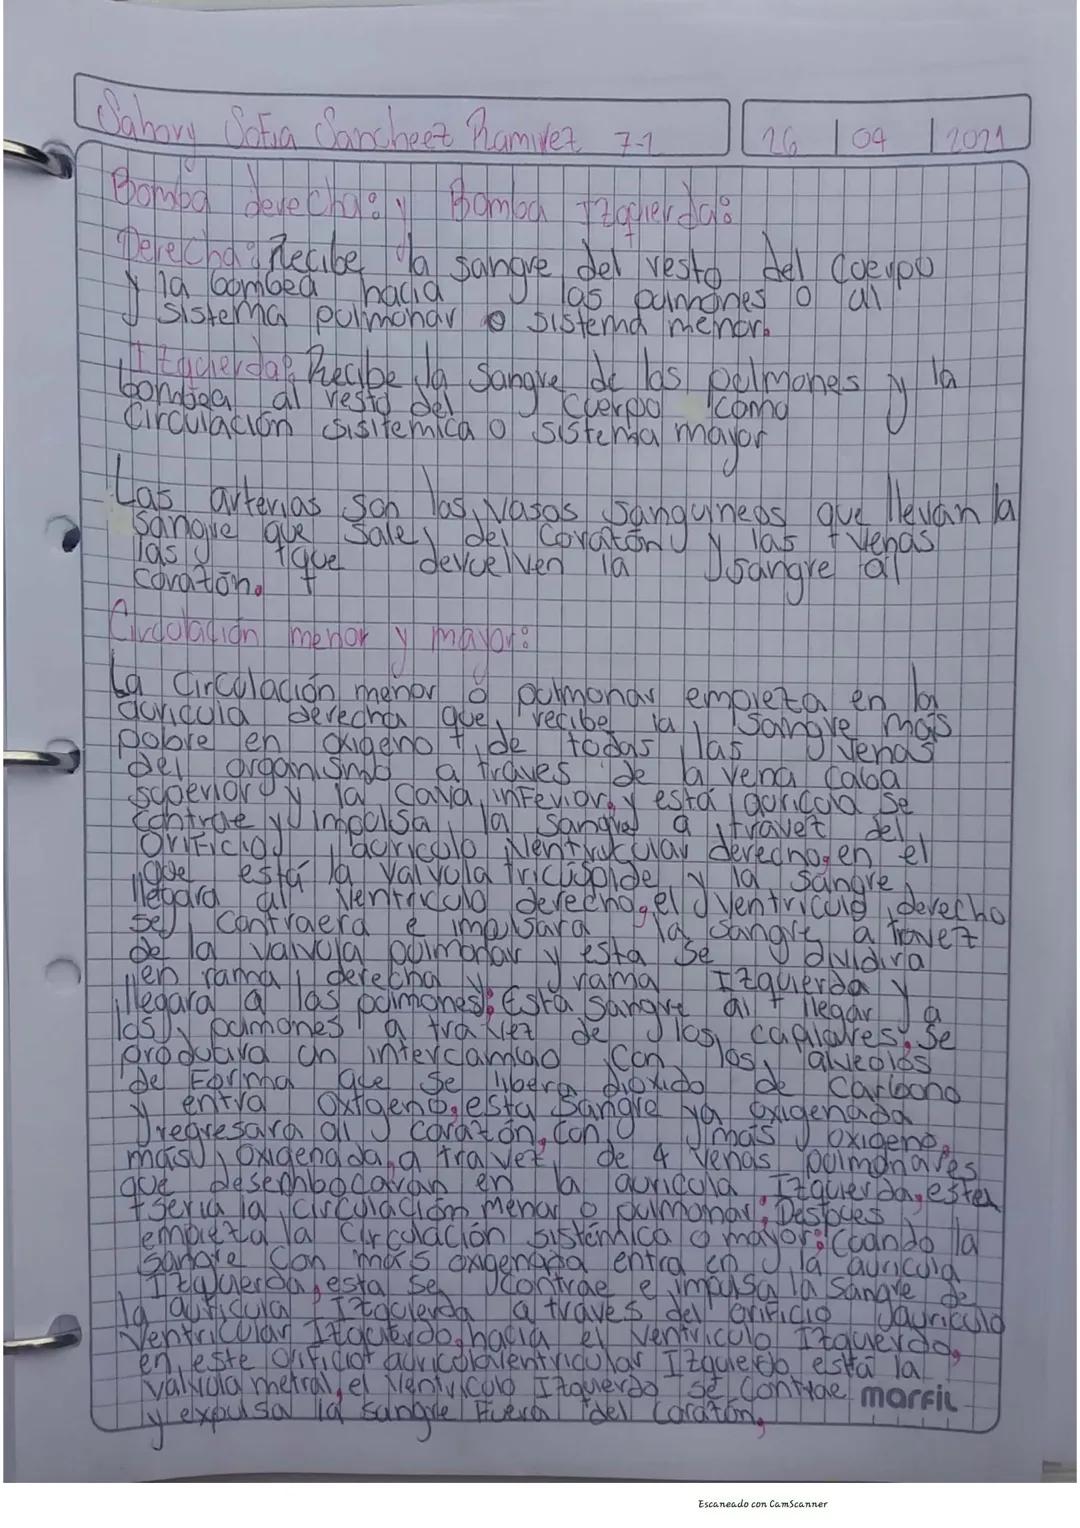 Sahory Sofia Sancheez Ramirez 7-1 26 | 04 | 2021
Bomba derecha: y Bomba Izquierda:
Derecha: Recibe la sangre del resto del cuerpo
y la bombea hacia las pulmones o al
sistema pulmonar o sistema menor.
Izquierda: Recibe la sangre de los pulmones y la
bombea al resto del cuerpo como
Circulación sisitemica o sistema mayor
Las arterias son los vasos sanguineos que llevan la
sangre que sale del corazón y las venas
las que devuelven la sangre al
corazón.
Circulación menor y mayor:
La circulación menor o pulmonar empieza en la
auricula derecha que recibe la sangre más
pobre en oxigeno, de todas las venas
del organismo a traves de la vena caba
superior y la cava inferior, y está auricula se
contrae y impulsa la sangre a travez del
orificio auriculo ventricular derecho, en el
que está la valvula tricúspide y la sangre
llegara al ventriculo derecho, el ventriculo derecho
se contraera e impulsara la sangre a travez
de la valvula pulmonar y esta se dividira
en rama derecha y rama Izquierda y
llegara a los pulmones; Esta sangre al llegar a
los pulmones a travez de los capilares. Se
producira un intercambio con los alveolos
de Forma que se libera dioxido de Carbono
y entra oxigeno, esta sangre ya oxigenada
regresara al corazón, con más oxigeno,
más oxigenada, a travez de 4 venas pulmonares
que desembocaran en la auricula Izquierda, esta
seria la circulación menor o pulmonar; Despues
empieza la circulación sistémica o mayor: Cuando la
sangre con más oxigenada entra en la auricula
Izquierda, esta se contrae e impulsa la sangre de
la auricula Izquierda a traves del orificio auriculo
ventricular Izquierdo, hacia el ventriculo Izquierdo,
en este orificio auriculoventricular Izquierdo está la
valvula metral, el ventriculo Izquierdo se contrae
y expulsa la sangre fuera del corazón,
marfil
Escaneado con CamScanner